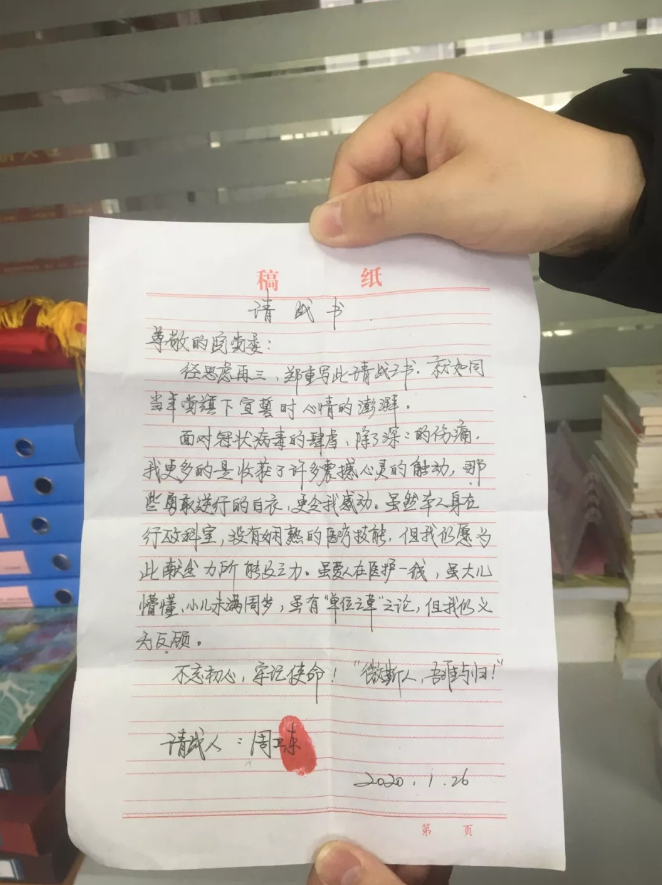 稿 纸
请战书
尊敬的院党委：
经思虑再三，郑重写此请战书，就如同
当年党旗下宣誓时心情的澎湃。
面对冠状病毒的肆虐，除了深深的伤痛，
我更多的是收获了许多震撼心灵的触动，那
些勇敢逆行的白衣，更令我感动。虽然本人身在
行政科室，没有娴熟的医疗技能，但我仍愿为
此献出力所能及之力。虽爱人在医护一线，虽大儿
懵懂、小儿未满周岁，虽有"单位之草"之论，但我仍义
无反顾。
不忘初心，牢记使命！"微斯人，吾谁与归！"
请战人：周
2020.1.26
第 页